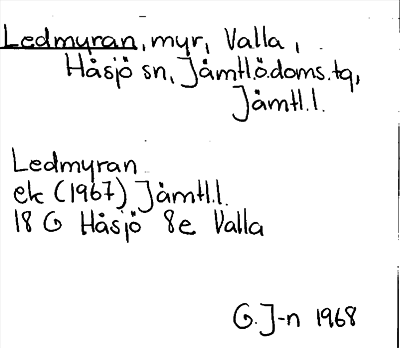 Ledmyran, myr, Valla,
Håsjö sn, Jämtl.ö.doms.tg,
Jämtl.l.
Ledmyran
ek (1967) Jämtl.l.
18 G Håsjö 8e Valla
G. J-n 1968